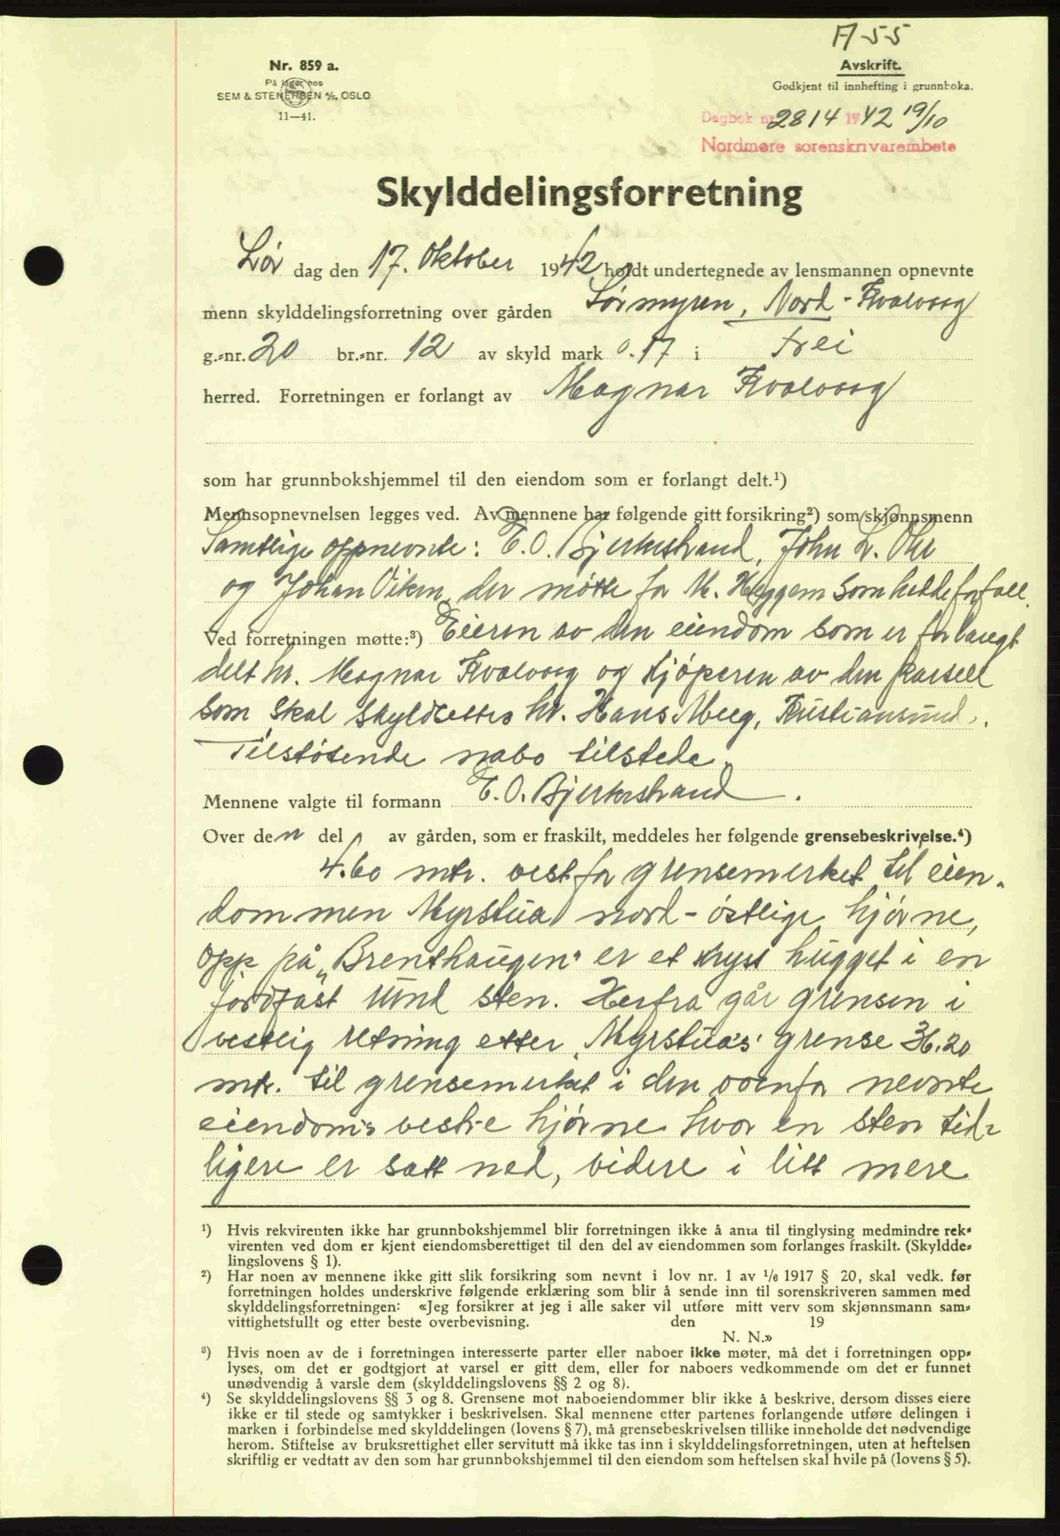 A-55
Nr. 859 a.
På lager hos
SEM & STENERSEN A/S, OSLO
11—41.
Avskrift.
Godkjent til innhefting i grunnboka.
Dagbok nr. 2814 1942 19/10
Nordmøre sorenskriverembete
Skylddelingsforretning
Lør dag den 17. Oktober 1942, holdt undertegnede av lensmannen opnevnte
menn skylddelingsforretning over gården Sørmyren, Nord-Kvalvaag
g.-nr. 20 br.-nr. 12 av skyld mark 0.17 i Frei
herred. Forretningen er forlangt av Magnar Kvalvaag
som har grunnbokshjemmel til den eiendom som er forlangt delt.¹)
Mennsopnevnelsen legges ved. Av mennene har følgende gitt forsikring²) som skjønnsmenn
Samtlige oppnevnte: E. O. Bjerkestrand, John L. Ohr
og Johan Viken, der møtte for M. Heggem som hadde forfall.
Ved forretningen møtte:³) Eieren av den eiendom som er forlangt
delt hr. Magnar Kvalvaag og kjøperen av den parsell
som skal skyldsettes hr. Hans Meeg, Kristiansund.
Tilstøtende nabo tilstede.
Mennene valgte til formann E. O. Bjerkestrand.
Over den del av gården, som er fraskilt, meddeles her følgende grensebeskrivelse.⁴)
4.60 mtr. vest for grensemerket til eien-
dommen Myrstua nord-østlige hjørne,
opp på „Brenthaugen" er et kryss hugget i en
jordfast rund sten. Herfra går grensen i
vestlig retning etter „Myrstua's" grense 36.20
mtr. til grensemerket i den ovenfor nevnte
eiendoms vestre hjørne hvor en sten tid-
ligere er satt ned, videre i litt mere
¹) Hvis rekvirenten ikke har grunnbokshjemmel blir forretningen ikke å anta til tinglysing medmindre rek-
virenten ved dom er kjent eiendomsberettiget til den del av eiendommen som forlanges fraskilt. (Skyldde-
lingslovens § 1).
²) Har noen av mennene ikke gitt slik forsikring som nevnt i lov nr. 1 av 1/6 1917 § 20, skal vedk. før
forretningen holdes underskrive følgende erklæring som blir å sende inn til sorenskriveren sammen med
skylddelingsforretningen: «Jeg forsikrer at jeg i alle saker vil utføre mitt verv som skjønnsmann sam-
vittighetsfullt og etter beste overbevisning. den 19
N. N.»
³) Hvis noen av de i forretningen interesserte parter eller naboer ikke møter, må det i forretningen opp-
lyses, om det er godtgjort at varsel er gitt dem, eller for naboers vedkommende om det er funnet
unødvendig å varsle dem (skylddelingslovens §§ 2 og 8).
⁴) Se skylddelingslovens §§ 3 og 8. Grensene mot naboeiendommer blir ikke å beskrive, dersom disses eiere
ikke er til stede og samtykker i beskrivelsen. Skal mennene etter partenes forlangende utføre delingen i
marken i forbindelse med skylddelingen (lovens § 7), må grensebeskrivelsen tillike inneholde det nødvendige
herom. Stiftelse av bruksrettighet eller servitutt må ikke tas inn i skylddelingsforretningen, uten at heftelsen
skriftlig er vedtatt av den som har grunnbokshjemmel til den eiendom som heftelsen skal hvile på (lovens § 5).